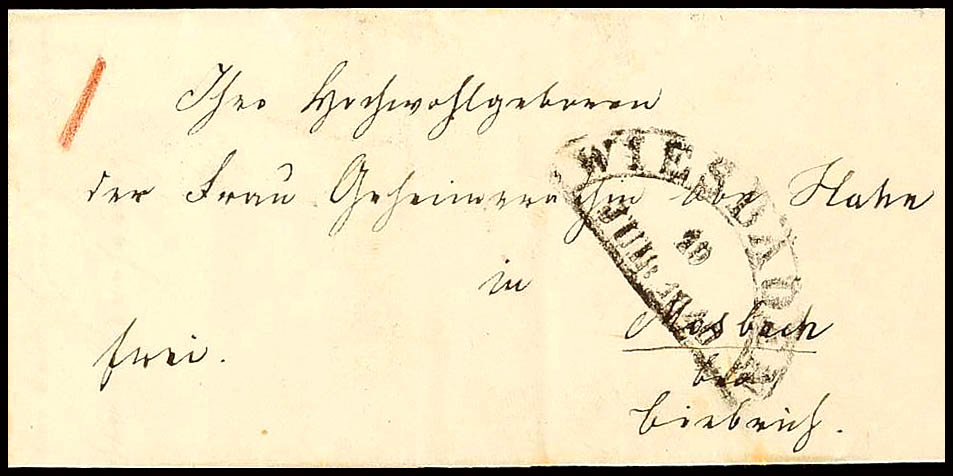 Ihro Hochwohlgeboren
der Frau Geheimeräthin
in
Mosbach
bei
Biebrich.
frei.
WIESBADEN
10